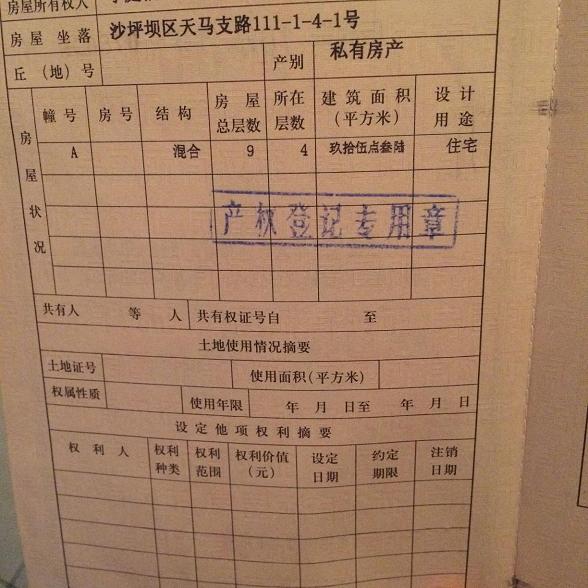 房屋所有权人
房屋坐落 沙坪坝区天马支路111-1-4-1号
丘（地）号 产别 私有房产
房屋状况 幢号 房号 结构 房屋总层数 所在层数 建筑面积（平方米） 设计用途
A 混合 9 4 玖拾伍点叁陆 住宅
产权登记专用章
共有人 等 人 共有权证号自 至
土地使用情况摘要
土地证号 使用面积(平方米)
权属性质 使用年限 年 月 日至 年 月 日
设定他项权利摘要
权利人 权利种类 权利范围 权利价值(元) 设定日期 约定期限 注销日期